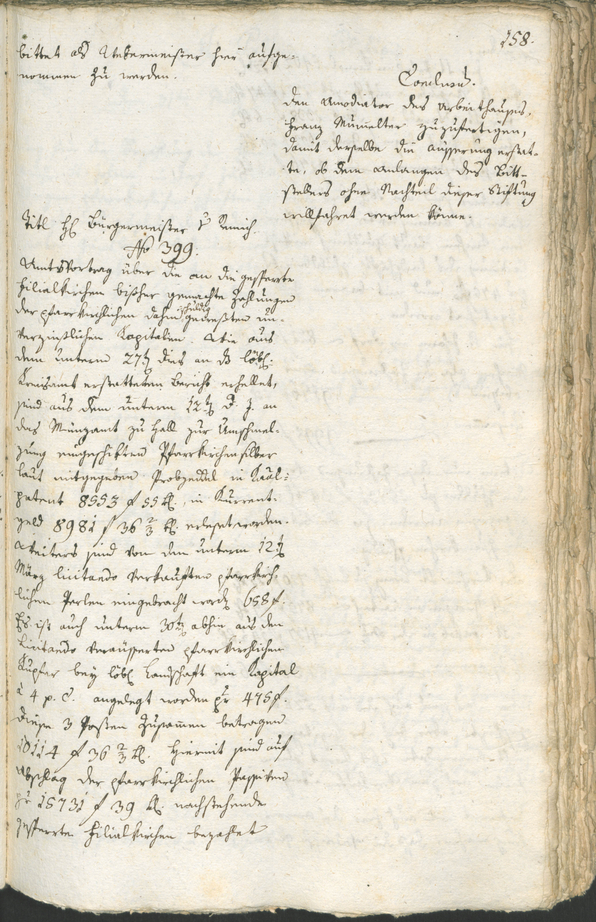 158.
bittet als Uebermeister hier aufge-
nommen zu werden.
Conclusum.
den Amodiator des Arbeithauses,
Franz zuzufertigen,
damit derselbe die äusserung erstat-
te, ob dem Anlangen des Bitt-
stellers ohne Nachteil dieser Stiftung
willfahret werden könne.
Titl H Bürgermeister
No 399.
Amtsvortrag über die an die gesperrte
Filialkirchen bisher gemachte Zahlungen
der pfarrkirchlichen dahin schuldig un-
verzinslichen Kapitalien. Wie aus
dem unterm 27 dies an das löbl.
Kreisamt erstatteten Bericht erhellet,
sind aus dem unterm 12 d. J. an
das Münzamt zu Hall zur Umschmel-
zung eingeschikten Pfarrkirchensilber
laut mitgegeben Probzeddel in
patent 8553 f 55 kr, in Kurrent-
geld 8981 f 36 2/3 kr erlöset worden.
Weiters sind von den unterm 12
März licitando verkauften pfarrkirch-
lichen Perlen eingebracht word 658 f.
Es ist auch unterm 30 abhin aus den
licitando veräusserten pfarrkirchlichen
Kupfer bey löbl Landschaft ein Kapital
à 4 p. C. angelegt worden pr 475 f.
Diese 3 Posten zusammen betragen
10114 f 36 2/3 kr. Hiemit sind auf
Abschlag der pfarrkirchlichen Passiven
pr 15731 f 39 kr nachstehende
gesperrten Filialkirchen bezahlet